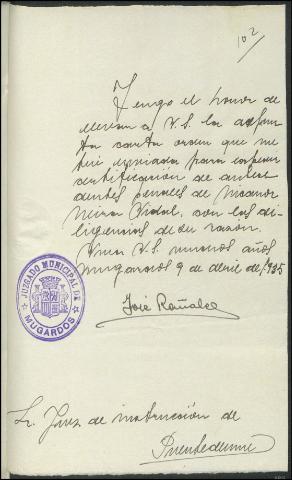 102
Tengo el honor de
elevar a V.S. la adjun
ta carta orden que me
fué enviada para
certificación de antece
dentes penales de Nicanor
Neira Vidal, con las di-
ligencias de su razón.
Viva V.S. muchos años
Mugardos 9 de abril de 1935
José
JUZGADO MUNICIPAL DE
MUGARDOS
Sr. Juez de instrucción de
Puentedeume